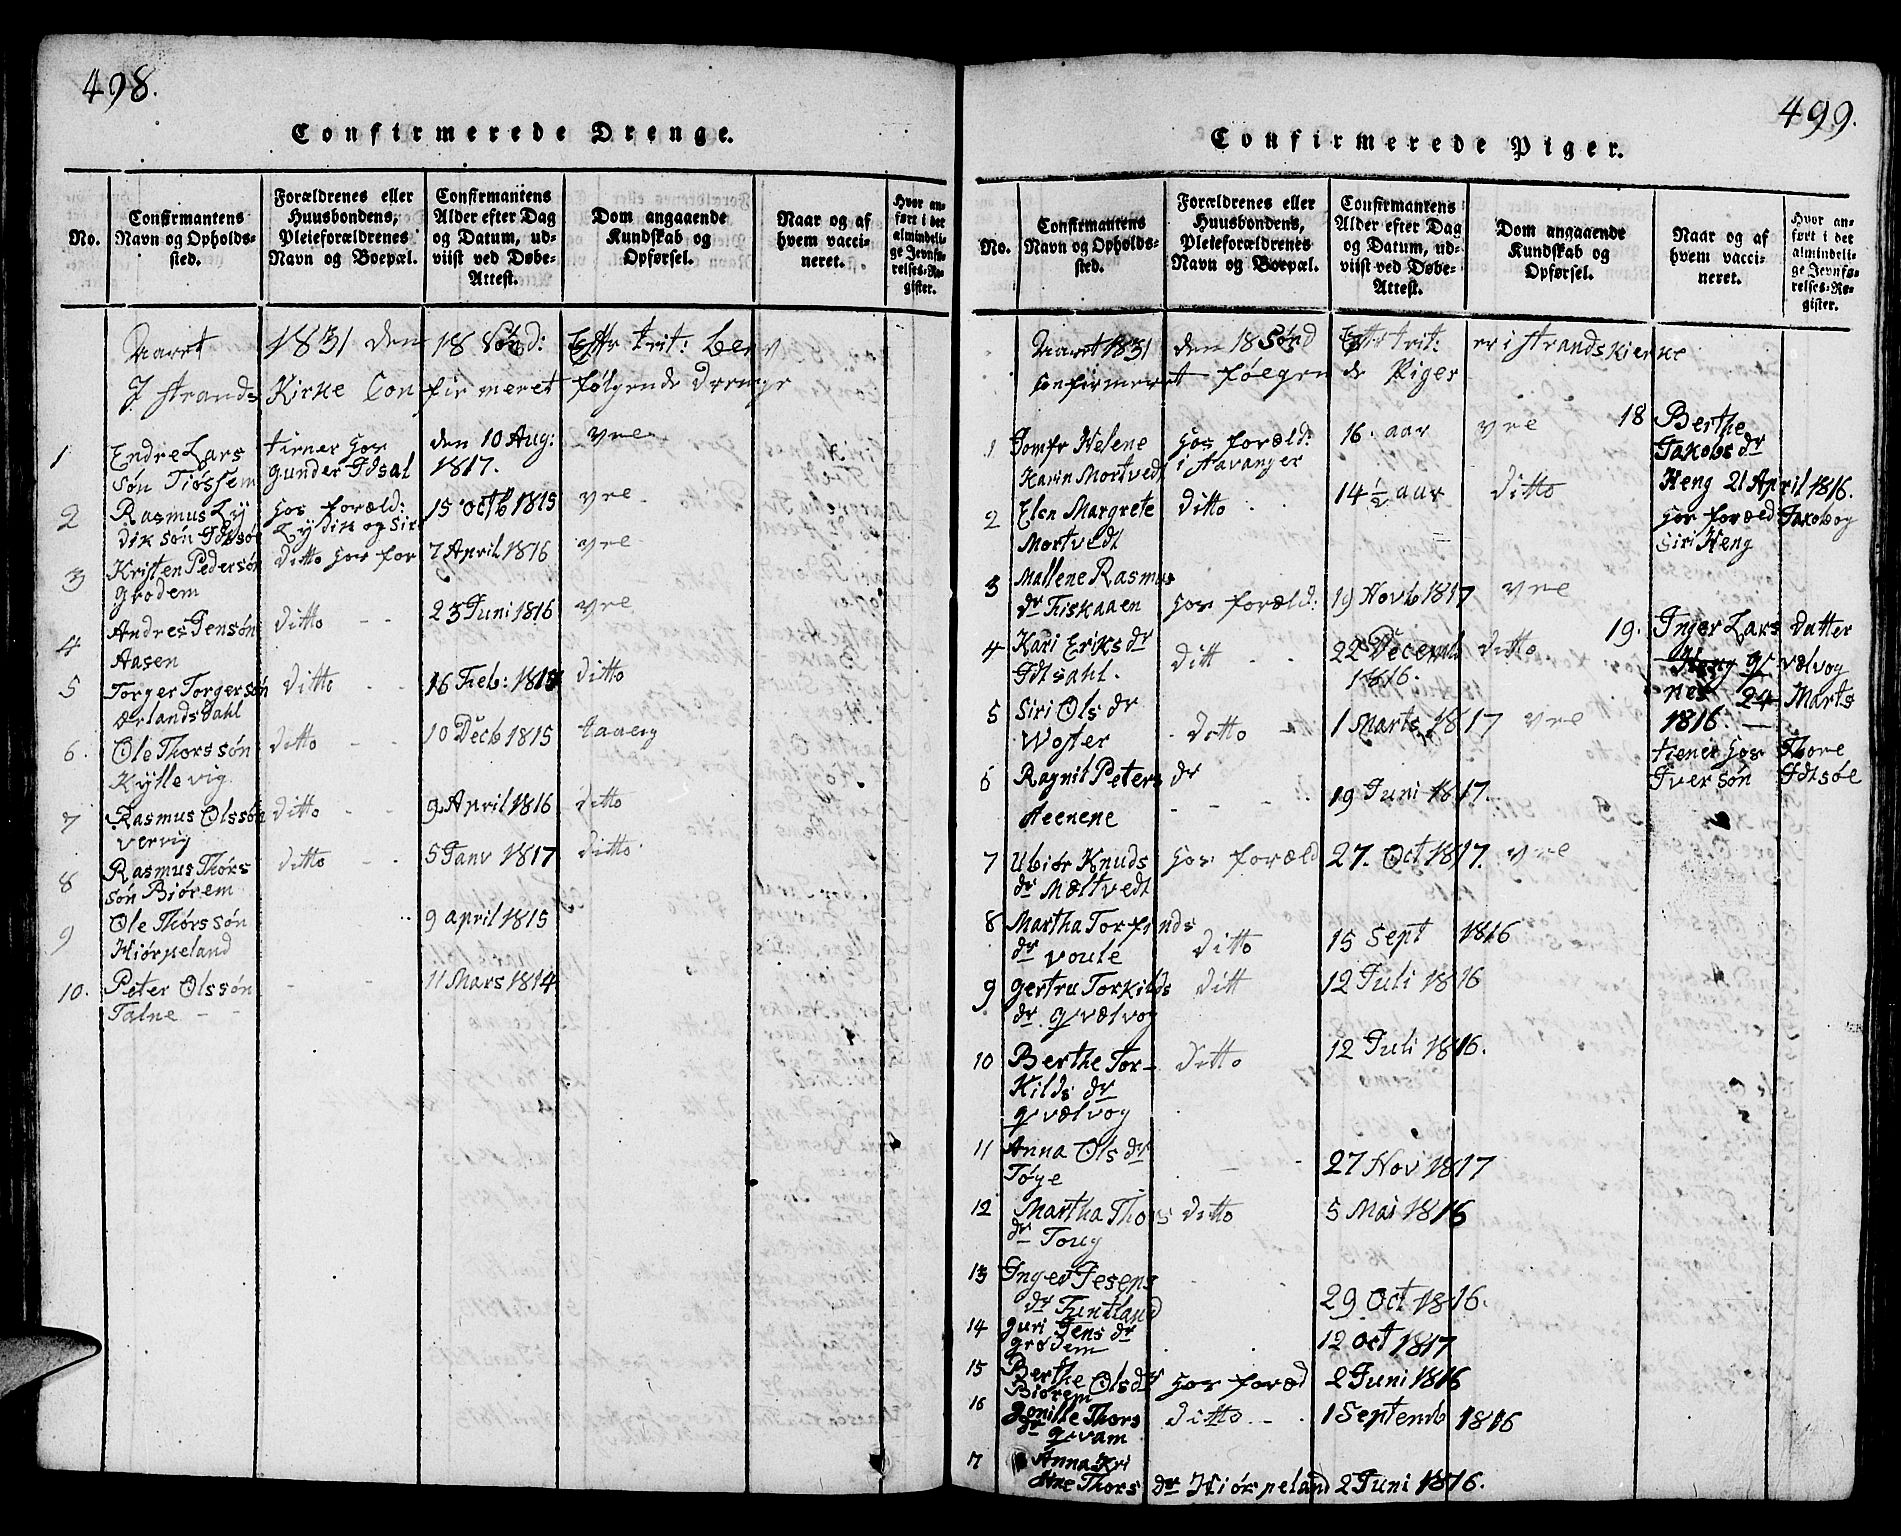 498.
Confirmerede Drenge.
No.
Confirmantens Navn og Opholdssted.
Forældrenes eller Huusbondens, Pleieforældrenes Navn og Boepæl.
Confirmantens Alder efter Dag og Datum, udviist ved Døbe-Attest.
Dom angaaende Kundskab og Opførsel.
Naar og af hvem vaccineret.
Hvor anført i det almindelige Jevnførelses-Register.
Aaret 1831 den 18 Sønd: Efttr trit: bev
J strands Kirke Confirmeret følgende drenge
1 Endre Lars tiener hos den 10 Aug: vre
søn Tiøssem gunder Idsal 1817.
2 Rasmus Ly hos foræld: 15 octb 1815 vre
dik søn Idtsøe Lydik og Siri
3 Kristen Pedersøn Ditto hos for 7 April 1816 vre
grodem
4 Andres Jensøn Ditto 23 Juni 1816 vre
Aasen
5 Torger Torgersøn Ditto 16 Feb: 1815 ditto
Ærlandsdahl
6. Ole Thorssøn Ditto 10 Decb 1815 taaelig
Kyllevig
7 Rasmus Olssøn Ditto 9 April 1816 ditto
vervig
8 Rasmus Thørs Ditto 5 Janv 1817 ditto
søn Biørem
9 Ole Thørssøn 9 april 1815
Hiørpeland
10. Peter Olssøn 11 Mars 1814
Talne
499.
Confirmerede Piger.
No.
Confirmantens Navn og Opholdssted.
Forældrenes eller Huusbondens, Pleieforældrenes Navn og Boepæl.
Confirmantens Alder efter Dag og Datum, udviist ved Døbe-Attest.
Dom angaaende Kundskab og Opførsel.
Naar og af hvem vaccineret.
Hvor anført i det almindelige Jevnførelses-Register.
Aaret 1831 den 18 Sønd Efttr trit: er i strands kierke
confirmeret følgende Piger
1 Jomfr Helene hos foræld: 16. aar vre
Karin Mortvedt i stavanger
2 Elen Margrete ditto 14 1/2 aar ditto
Mortvedt
3 Mallene Rasmus
dr Fiskaaen hos foræld: 19 Novb 1817 vre
4 Kari Eriks dr ditt 22 Decemb ditto
Idtsahl. 1816.
5 Siri Ols dr
Woster ditto 1 Marts 1817 vre
6 Ragnil Peters dr
Heenene 19 Juni 1817.
7 Ubiør Knuds hos foræld 27. Oct 1817. vre
dr Mæltvedt
8 Martha Torfinds
dr voule ditto 15 Sept 1816
9 gertru Torkilds ditt 12 Juli 1816
dr qvælvog
10 Berthe Tor- ditto 12 Juli 1816.
Kilds dr
qvælvog
11 Anna Ols dr 27 Nov 1817
Tøge
12 Martha Thors ditto 5 Mai 1816
dr Toug
13 Inger Jesens
dr Tuntland 29 Oct 1816.
14 guri Jens dr
grødem 12 oct 1817
15 Berthe Olsdr hos foræd 2 Juni 1816
Biørem
16 gonille Thors ditto 1 Septemb 1816
dr qvam
7 Anna Kri
stne Thors dr Hiørpeland 2 Juni 1816.
18 Berthe
Jakobs dr
Heng 21 April 1816.
hos foræld Jakob og
siri Heng
19. Inger Lars datter
qvælvog
24 Marts
1816
tiener hos Thore
Iversøn Idtsøe